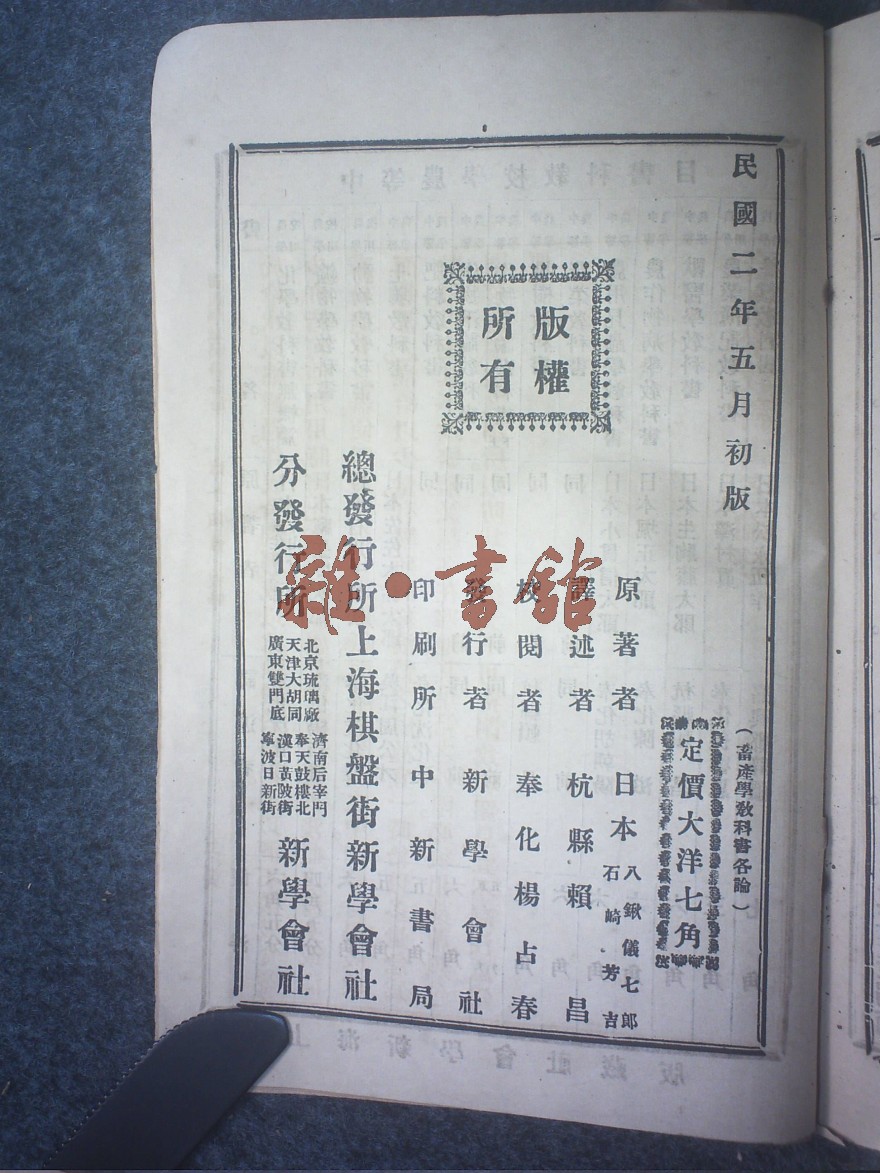 民國二年五月初版
（畜產學教科書各論）
定價大洋七角
版權
所有
原著者 日本 八鍬儀七郎
石崎芳吉
譯述者 杭縣賴昌
校閱者 奉化楊占春
發行者 新學會社
印刷所 中新書局
總發行所 上海棋盤街新學會社
分發行所
北京琉璃廠
天津大胡同
廣東雙門底
濟南后宰門
奉天鼓樓北
漢口黃陂街
寧波日新街
新學會社
雜·書館